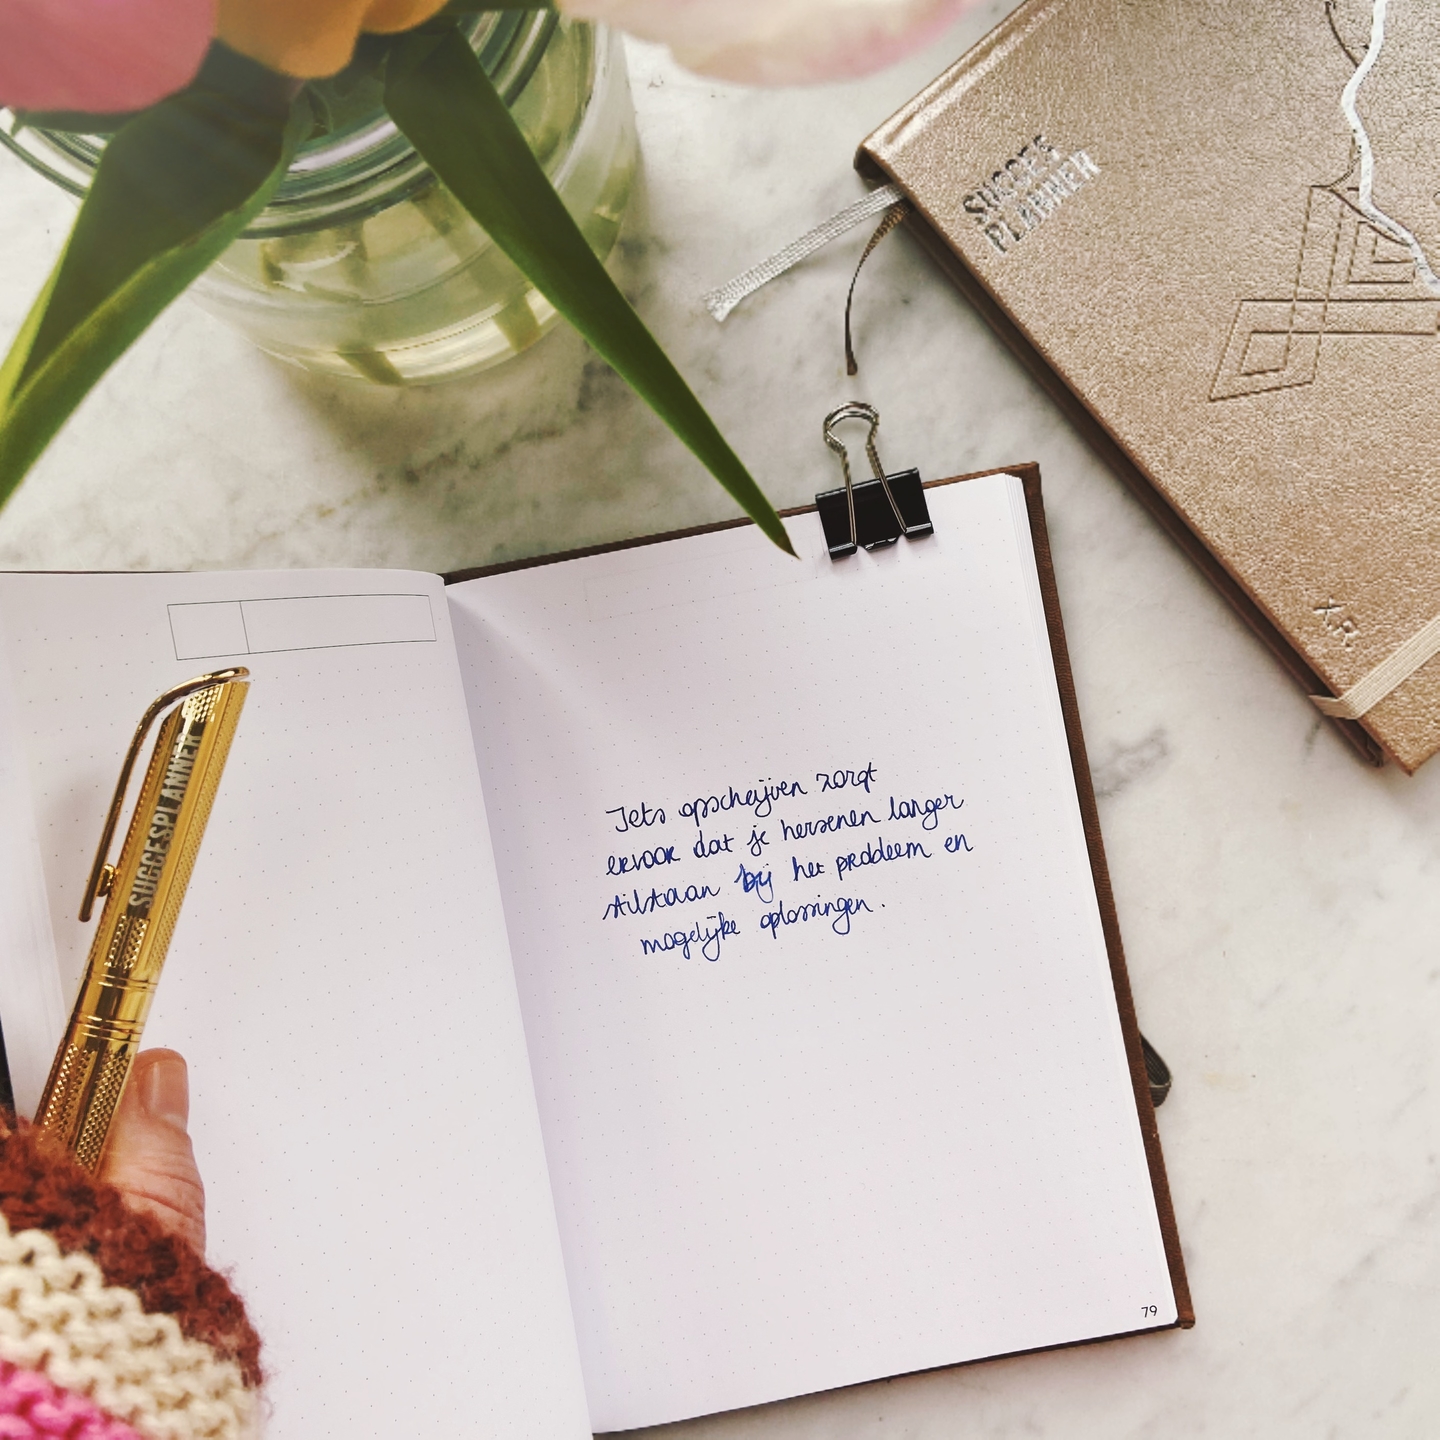 SUCCES
PLANNER
X.R.
SUCCESPLANNER
Iets opschrijven zorgt
ervoor dat je hersenen langer
stilstaan bij het probleem en
mogelijke oplossingen.
79